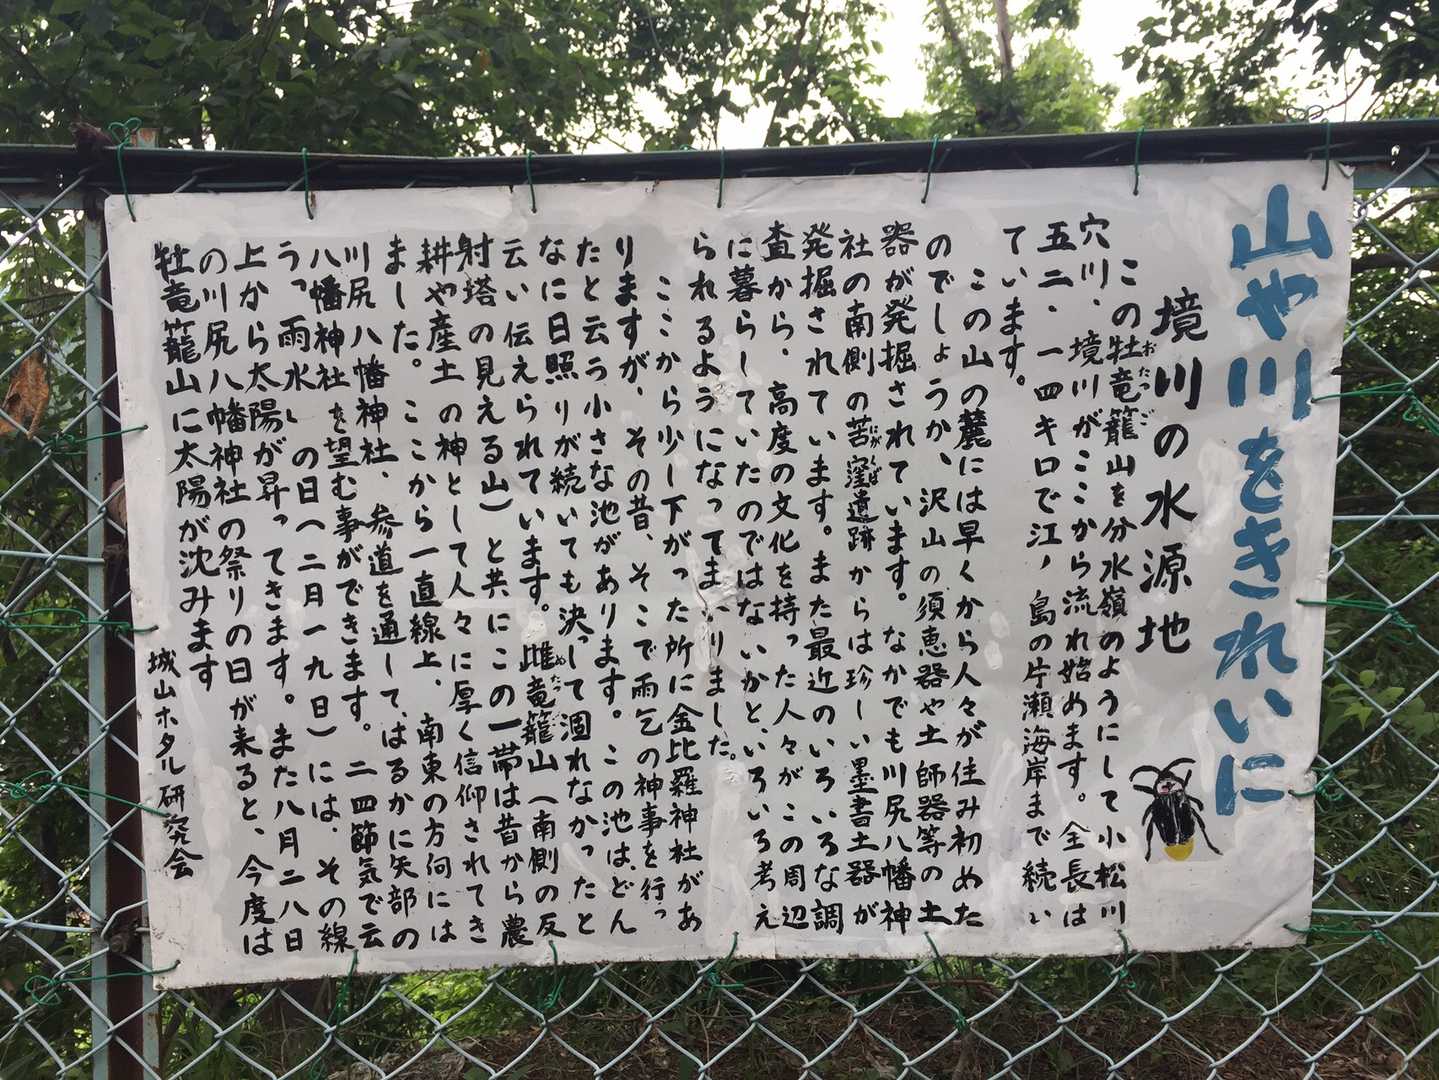 山や川をきれいに
境川の水源地
この牡竜籠山を分水嶺のようにして小松川
穴川、境川がここから流れ始めます。全長は
五二・一四キロで江ノ島の片瀬海岸まで続い
ています。
この山の麓には早くから人々が住み初めた
のでしょうか、沢山の須恵器や土師器等の土
器が発掘されています。なかでも川尻八幡神
社の南側の苦窪遺跡からは珍しい墨書土器が
発掘されています。また最近のいろいろな調
査から、高度の文化を持った人々がこの周辺
に暮らしていたのではないかと、いろいろ考え
られるようになってまいりました。
ここから少し下がった所に金比羅神社があ
りますが、その昔、そこで雨乞の神事を行っ
たと云う小さな池があります。この池は、どん
なに日照りが続いても決って涸れなかったと
云い伝えられています。雌竜籠山(南側の反
射塔の見える山)と共にこの一帯は昔から農
耕や産土の神として人々に厚く信仰されてき
ました。ここから一直線上、南東の方向には
川尻八幡神社、参道を通して、はるかに矢部の
八幡神社を望む事ができます。二四節気で云
う、雨水、の日(二月一九日)には、その線
上から太陽が昇ってきます。また八月二八日
の川尻八幡神社の祭りの日が来ると、今度は
牡竜籠山に太陽が沈みます
城山ホタル研究会